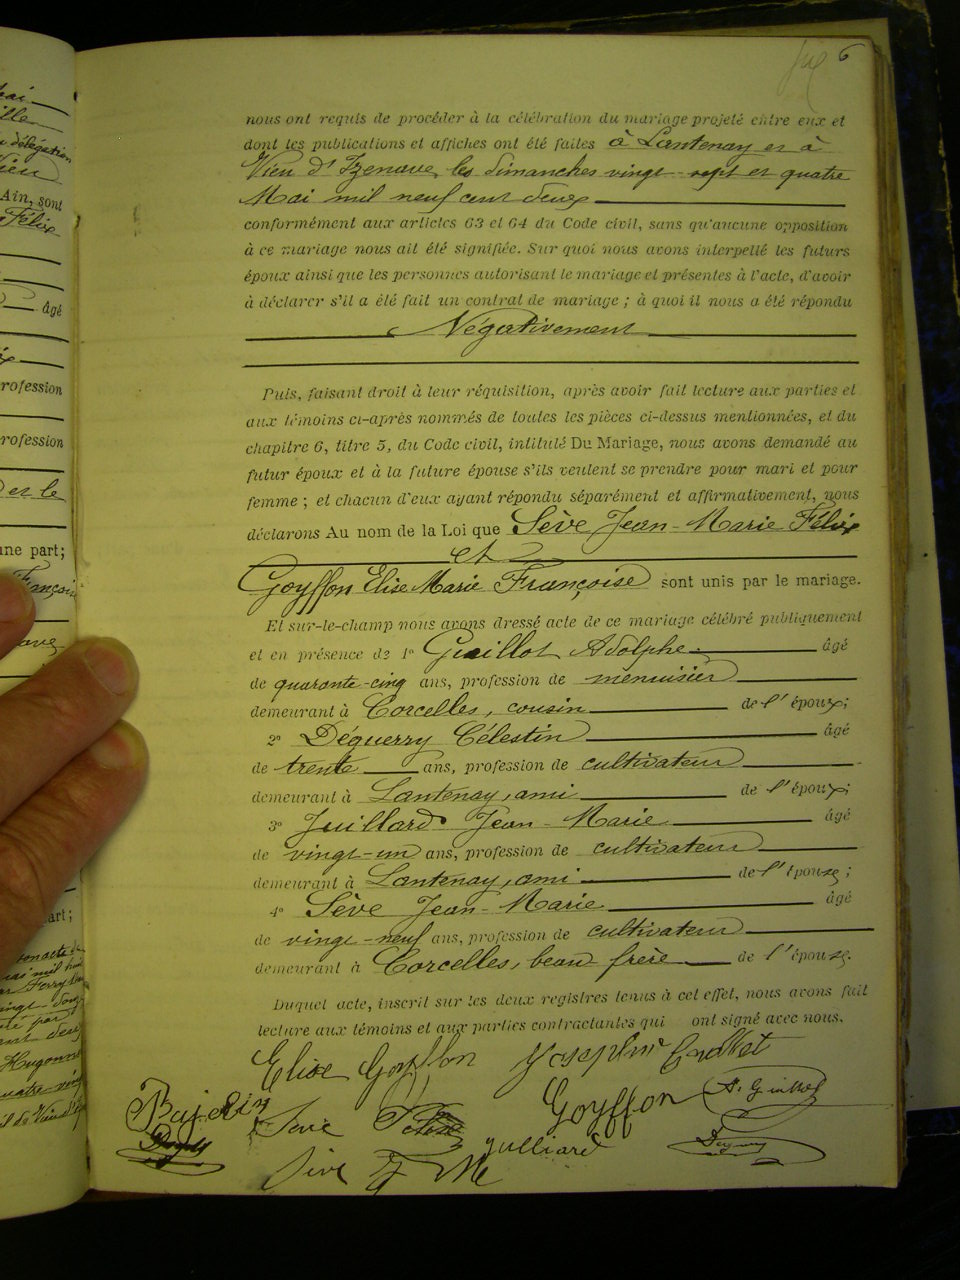 6
nous ont requis de procéder à la célébration du mariage projeté entre eux et
dont les publications et affiches ont été faites à Lantenay et à
Vieu d'Izenave, les dimanches vingt-sept et quatre
Mai mil neuf cent deux
conformément aux articles 63 et 64 du Code civil, sans qu'aucune opposition
à ce mariage nous ait été signifiée. Sur quoi nous avons interpellé les futurs
époux ainsi que les personnes autorisant le mariage et présentes à l'acte, d'avoir
à déclarer s'il a été fait un contrat de mariage ; à quoi il nous a été répondu
Négativement
Puis, faisant droit à leur réquisition, après avoir fait lecture aux parties et
aux témoins ci-après nommés de toutes les pièces ci-dessus mentionnées, et du
chapitre 6, titre 5, du Code civil, intitulé Du Mariage, nous avons demandé au
futur époux et à la future épouse s'ils veulent se prendre pour mari et pour
femme ; et chacun d'eux ayant répondu séparément et affirmativement, nous
déclarons Au nom de la Loi que Sève Jean-Marie Félix
et
Goyffon Elise Marie Françoise sont unis par le mariage.
Et sur-le-champ nous avons dressé acte de ce mariage célébré publiquement
et en présence de 1° Guillot Adolphe âgé
de quarante-cinq ans, profession de menuisier
demeurant à Corcelles, cousin de l'époux;
2° Déguerry Célestin âgé
de trente ans, profession de cultivateur
demeurant à Lantenay, ami de l'époux;
3° Juillard Jean-Marie âgé
de vingt-un ans, profession de cultivateur
demeurant à Lantenay, ami de l'épouse;
4° Sève Jean-Marie âgé
de vingt-neuf ans, profession de cultivateur
demeurant à Corcelles, beau frère de l'épouse.
Duquel acte, inscrit sur les deux registres tenus à cet effet, nous avons fait
lecture aux témoins et aux parties contractantes qui ont signé avec nous.
Elise Goyffon
Goyffon A. Guillot
Sève Félix
Julliard
Sève J M